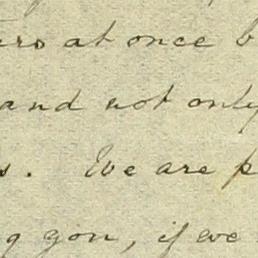 ers at once b
and not only
s. We are p
g you, if we